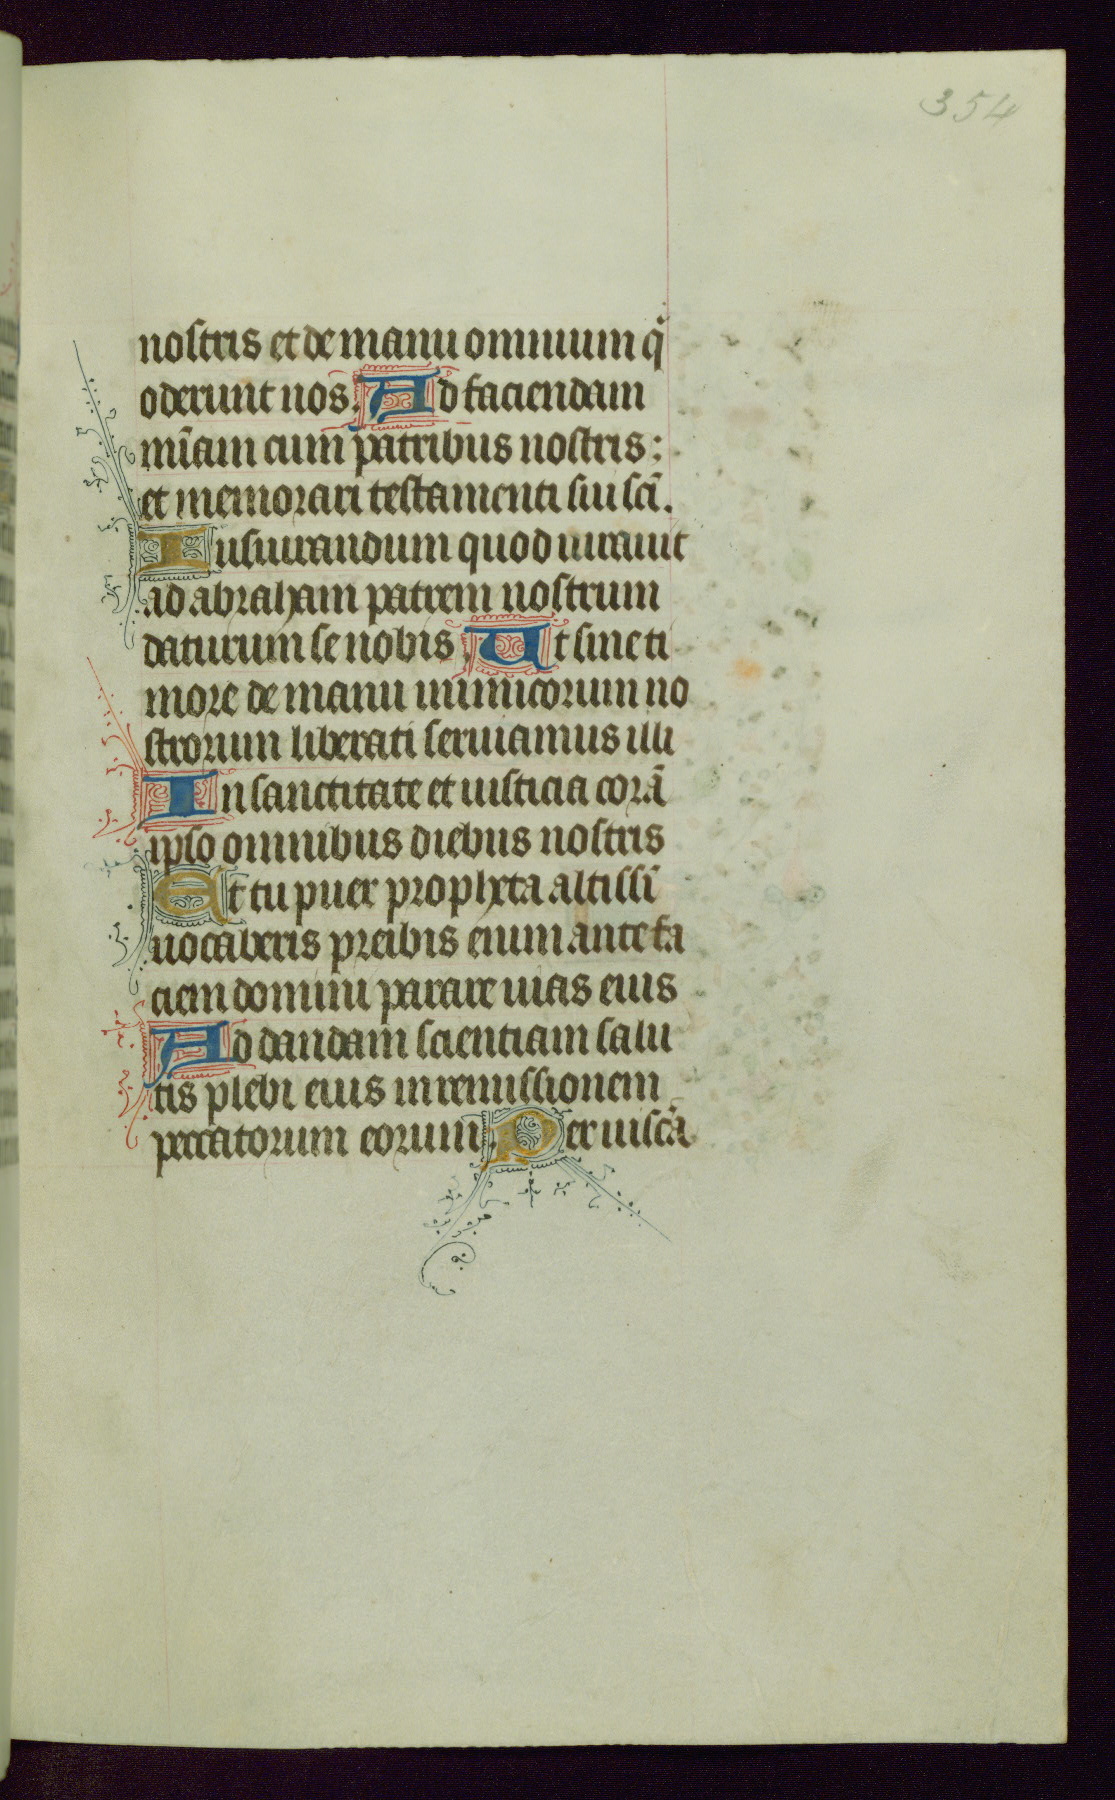 354
nostris et de manu omnium qͥ
oderunt nos. Ad faciendam
mīam cum patribus nostris:
et memorari testamenti sui scī.
Iusiurandum quod iurauit
ad abraham patrem nostrum
daturum se nobis. Ut sine ti
more de manu inimicorum no
strorum liberati seruiamus illi
In sanctitate et iusticia corā
ipso omnibus diebus nostris
Et tu puer propheta altissī
uocaberis preibis enim ante fa
ciem domini parare uias eius
Ad dandam scientiam salu
tis plebi eius in remissionem
peccatorum eorum. Per uiscāꝫ